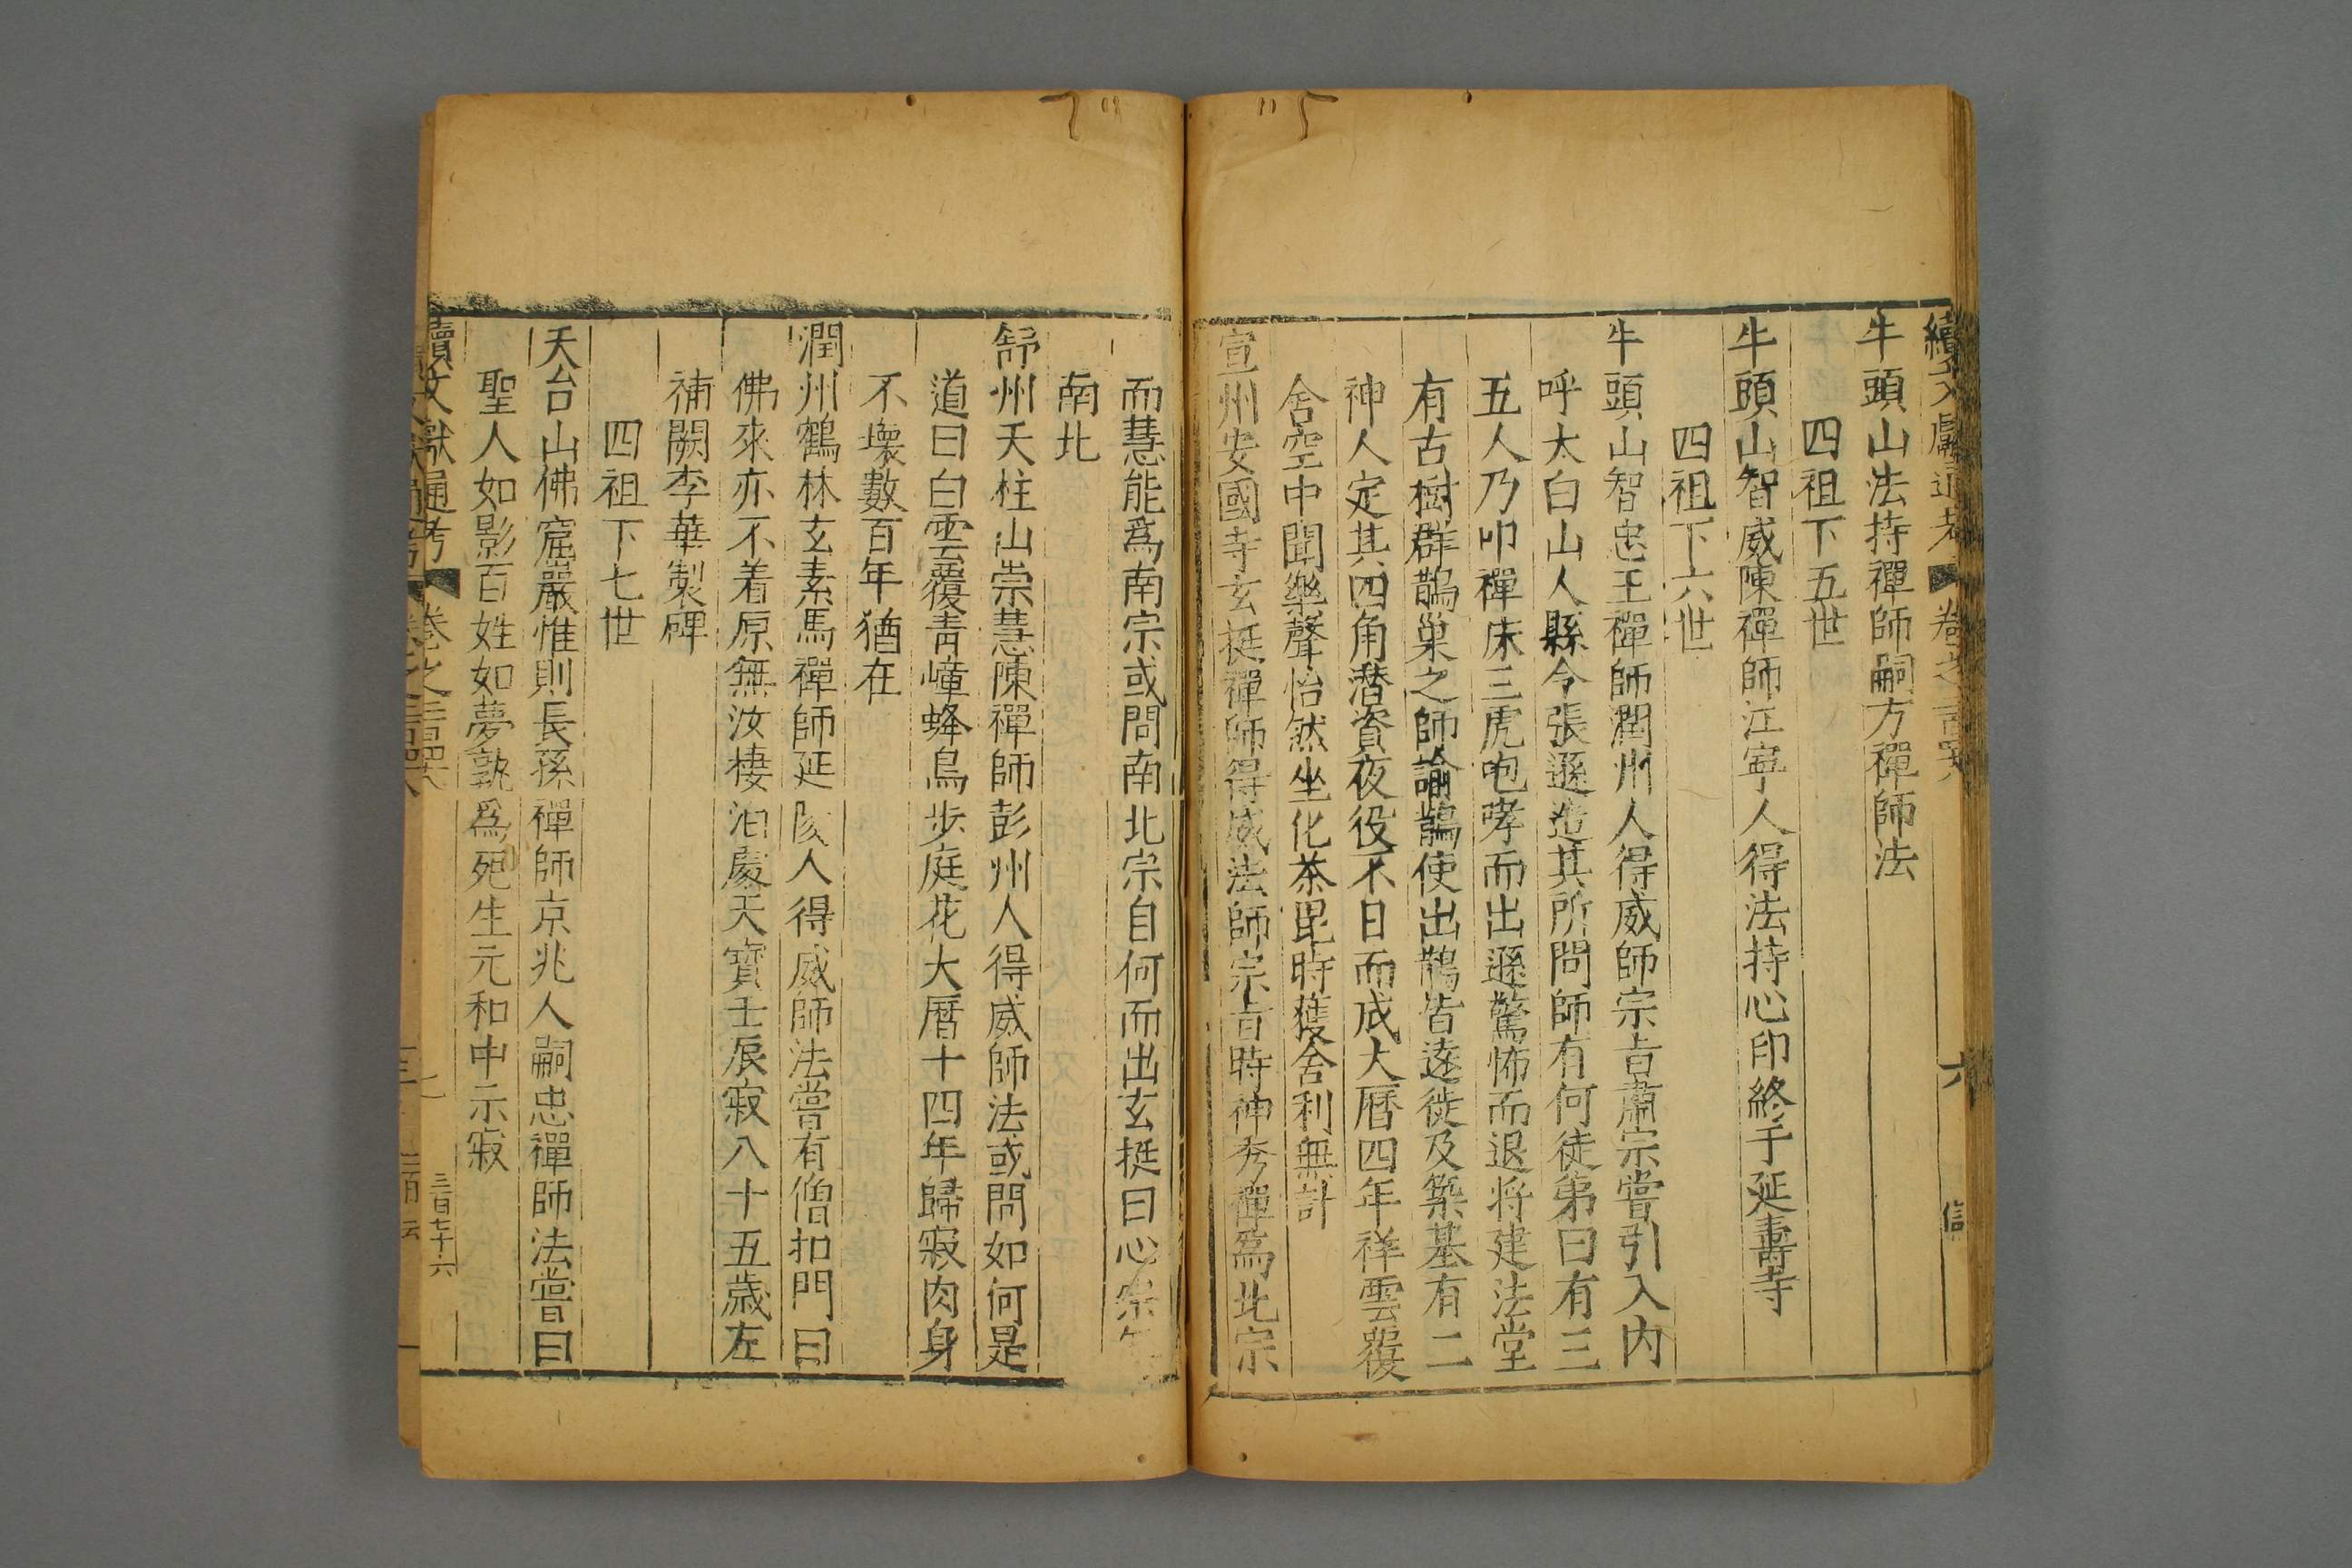 續文獻通考 卷之二百四 六 信
牛頭山法持禪師嗣方禪師法
四祖下五世
牛頭山智威陳禪師江寧人得法持心印終于延壽寺
四祖下六世
牛頭山智忠王禪師潤州人得威師宗旨肅宗嘗引入內
呼太白山人縣令張遜造其所問師有何徒弟曰有三
五人乃叩禪床三虎咆哮而出遜驚怖而退将建法堂
有古樹群鵲巢之師諭鵲使出鵲皆遠徙及築基有二
神人定其四角潛資夜役不日而成大曆四年祥雲覆
舍空中聞樂聲怡然坐化茶毘時獲舍利無計
宣州安國寺玄挺禪師得威法師宗旨時神秀禪爲北宗
而慧能爲南宗或問南北宗自何而出玄挺曰心宗
南北
舒州天柱山崇慧陳禪師彭州人得威師法或問如何是
道曰白雲覆青嶂蜂鳥步庭花大曆十四年歸寂肉身
不壞數百年猶在
潤州鶴林玄素馬禪師延陵人得威師法嘗有僧扣門曰
佛來亦不着原無汝棲泊處天寶壬辰寂八十五歲左
補闕李華製碑
四祖下七世
天台山佛窟巖惟則長孫禪師京兆人嗣忠禪師法嘗曰
聖人如影百姓如夢孰爲死生元和中示寂
續文獻通考 卷之 七 三百七十六